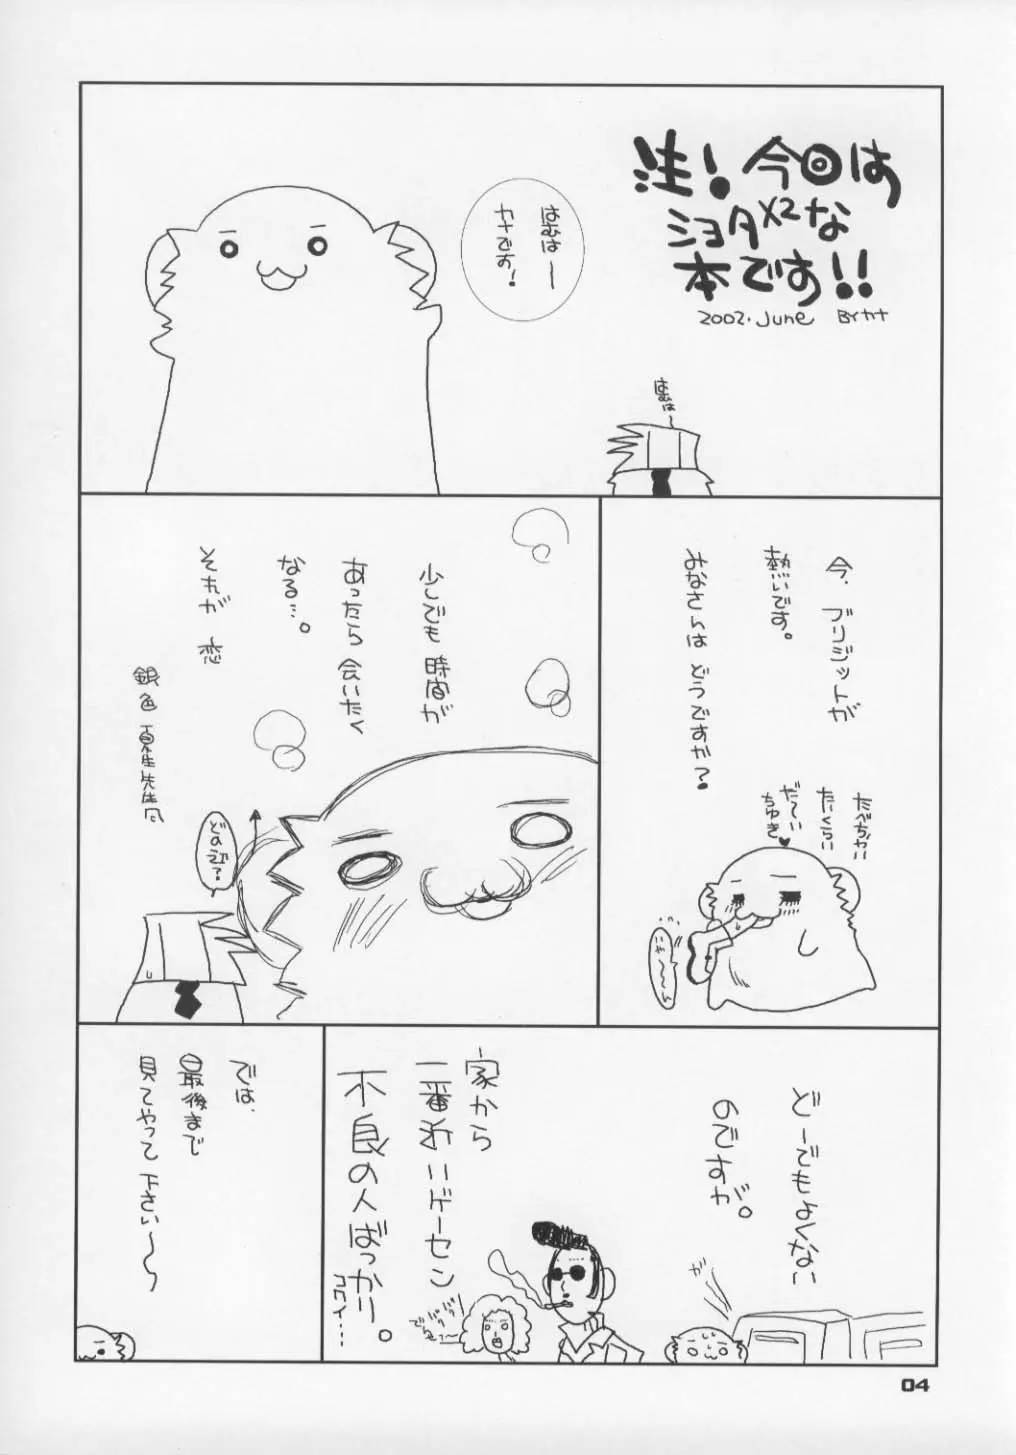 注!今回は
ショタ×2な
本です!!
2002.June BYカナ
はむはー
カナです!
はむはー
今、ブリジットが
熱いです。
みなさんは どうですか?
たべちゃい
たーくらい
だーい
ちゅき♥
いや〜〜
少しでも 時間が
あったら 会いたく
なる…。
それが 恋
銀色 夏生先生
どのへが?
どーでもよくない
のですが。
ガ
家から
一番近いゲーセン
不良の人ばっかり。
コワイ…
では、
最後まで
見てやって 下さい〜〜
04